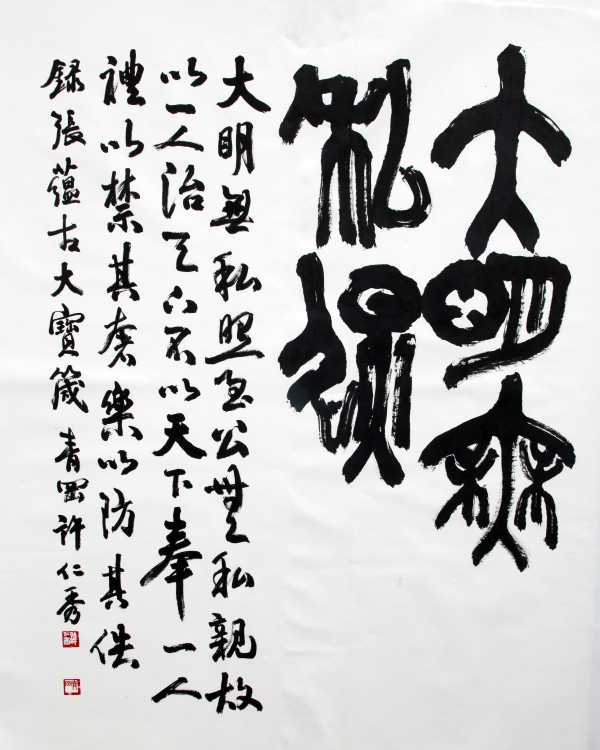 大明無
私照
大明無私照至公無私親故
以一人治天下不以天下奉一人
禮以禁其奢樂以防其佚
録張蘊古大寶箴 青岡許仁秀